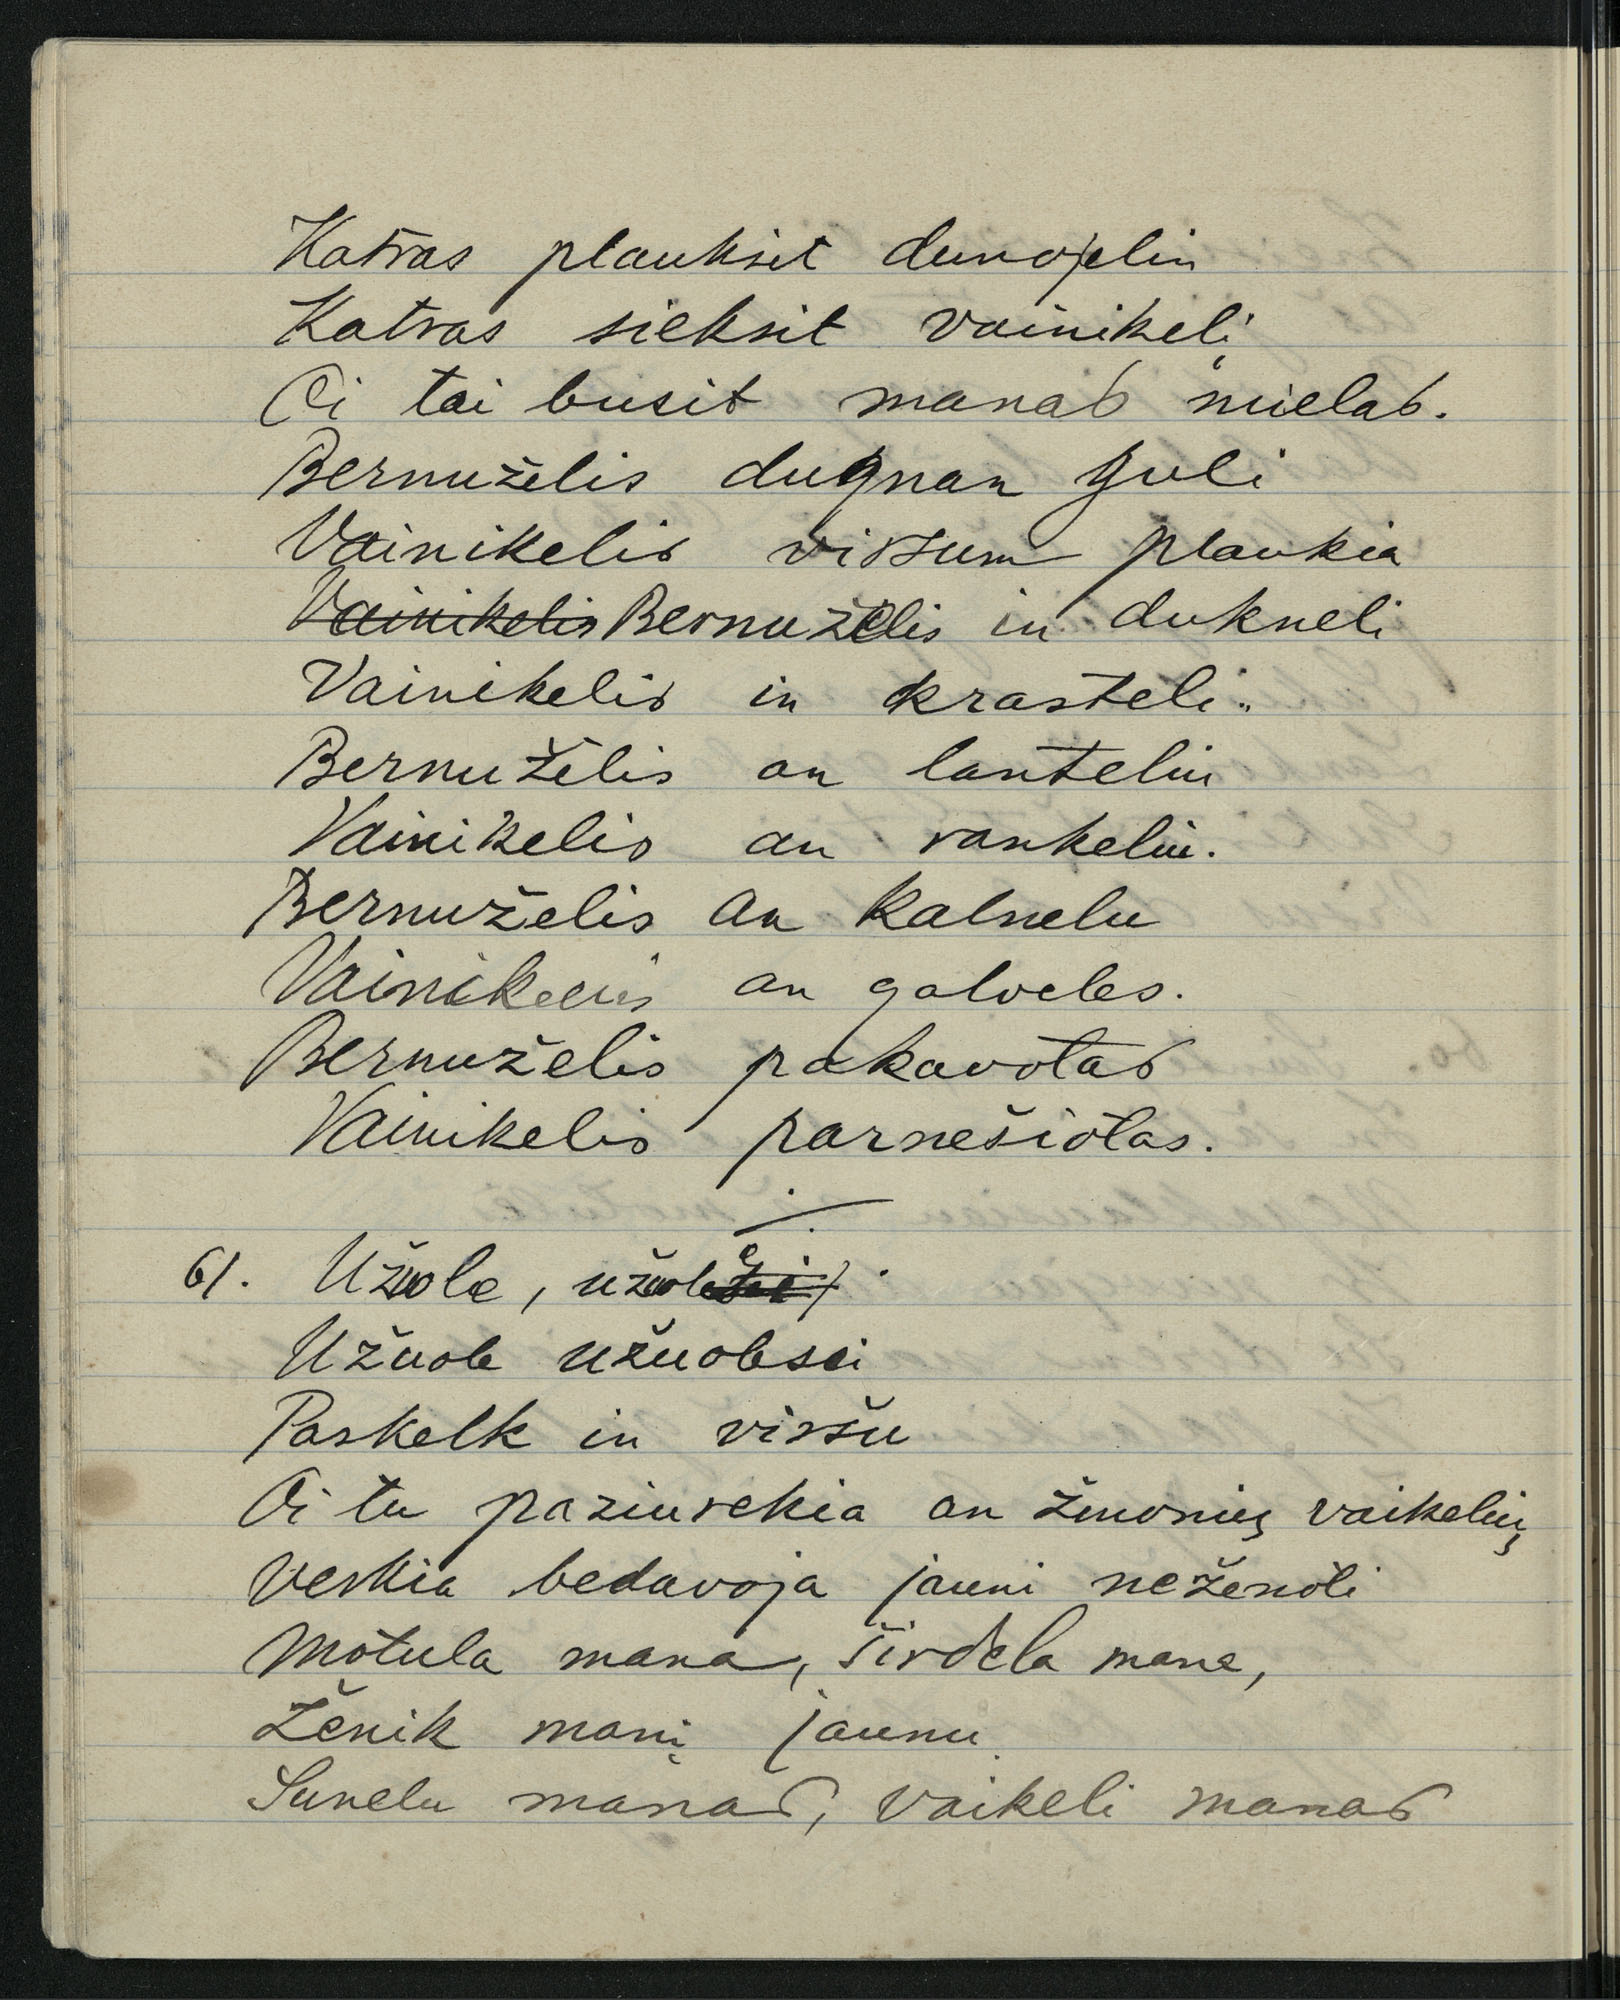 Katras plauksit dunojelin
Katras sieksit vainikelį
Oi tai busit manas mielas.
Bernuželis dugnan guli
Vainikelis viršum plaukia
Vainikelis Bernuželis in dukneli
Vainikelis in krasteli..
Bernuželis an lantelin
Vainikelis an rankelin.
Bernuželis an kalnelu
Vainikelis an galveles.
Bernuželis pakavotas
Vainikelis parnešiotas.
61. Užuole, užuole
Užuole užuolesei
Paskelk in viršu
Oi tu paziurekia an žmonių vaikelių
Verkia bedavoja jauni neženoti
Motula mana, širdela mane,
Ženik manį jaunu
Sunelu manas, vaikeli manas